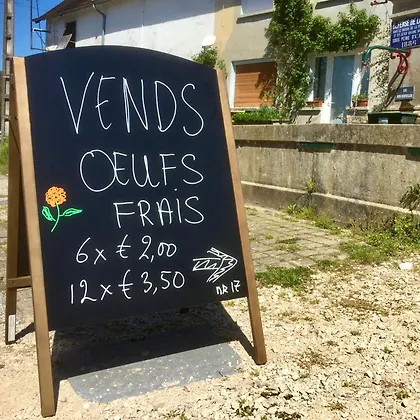 VENDS
ŒUFS
FRAIS
6 x € 2,00
12 x € 3,50
NR 17